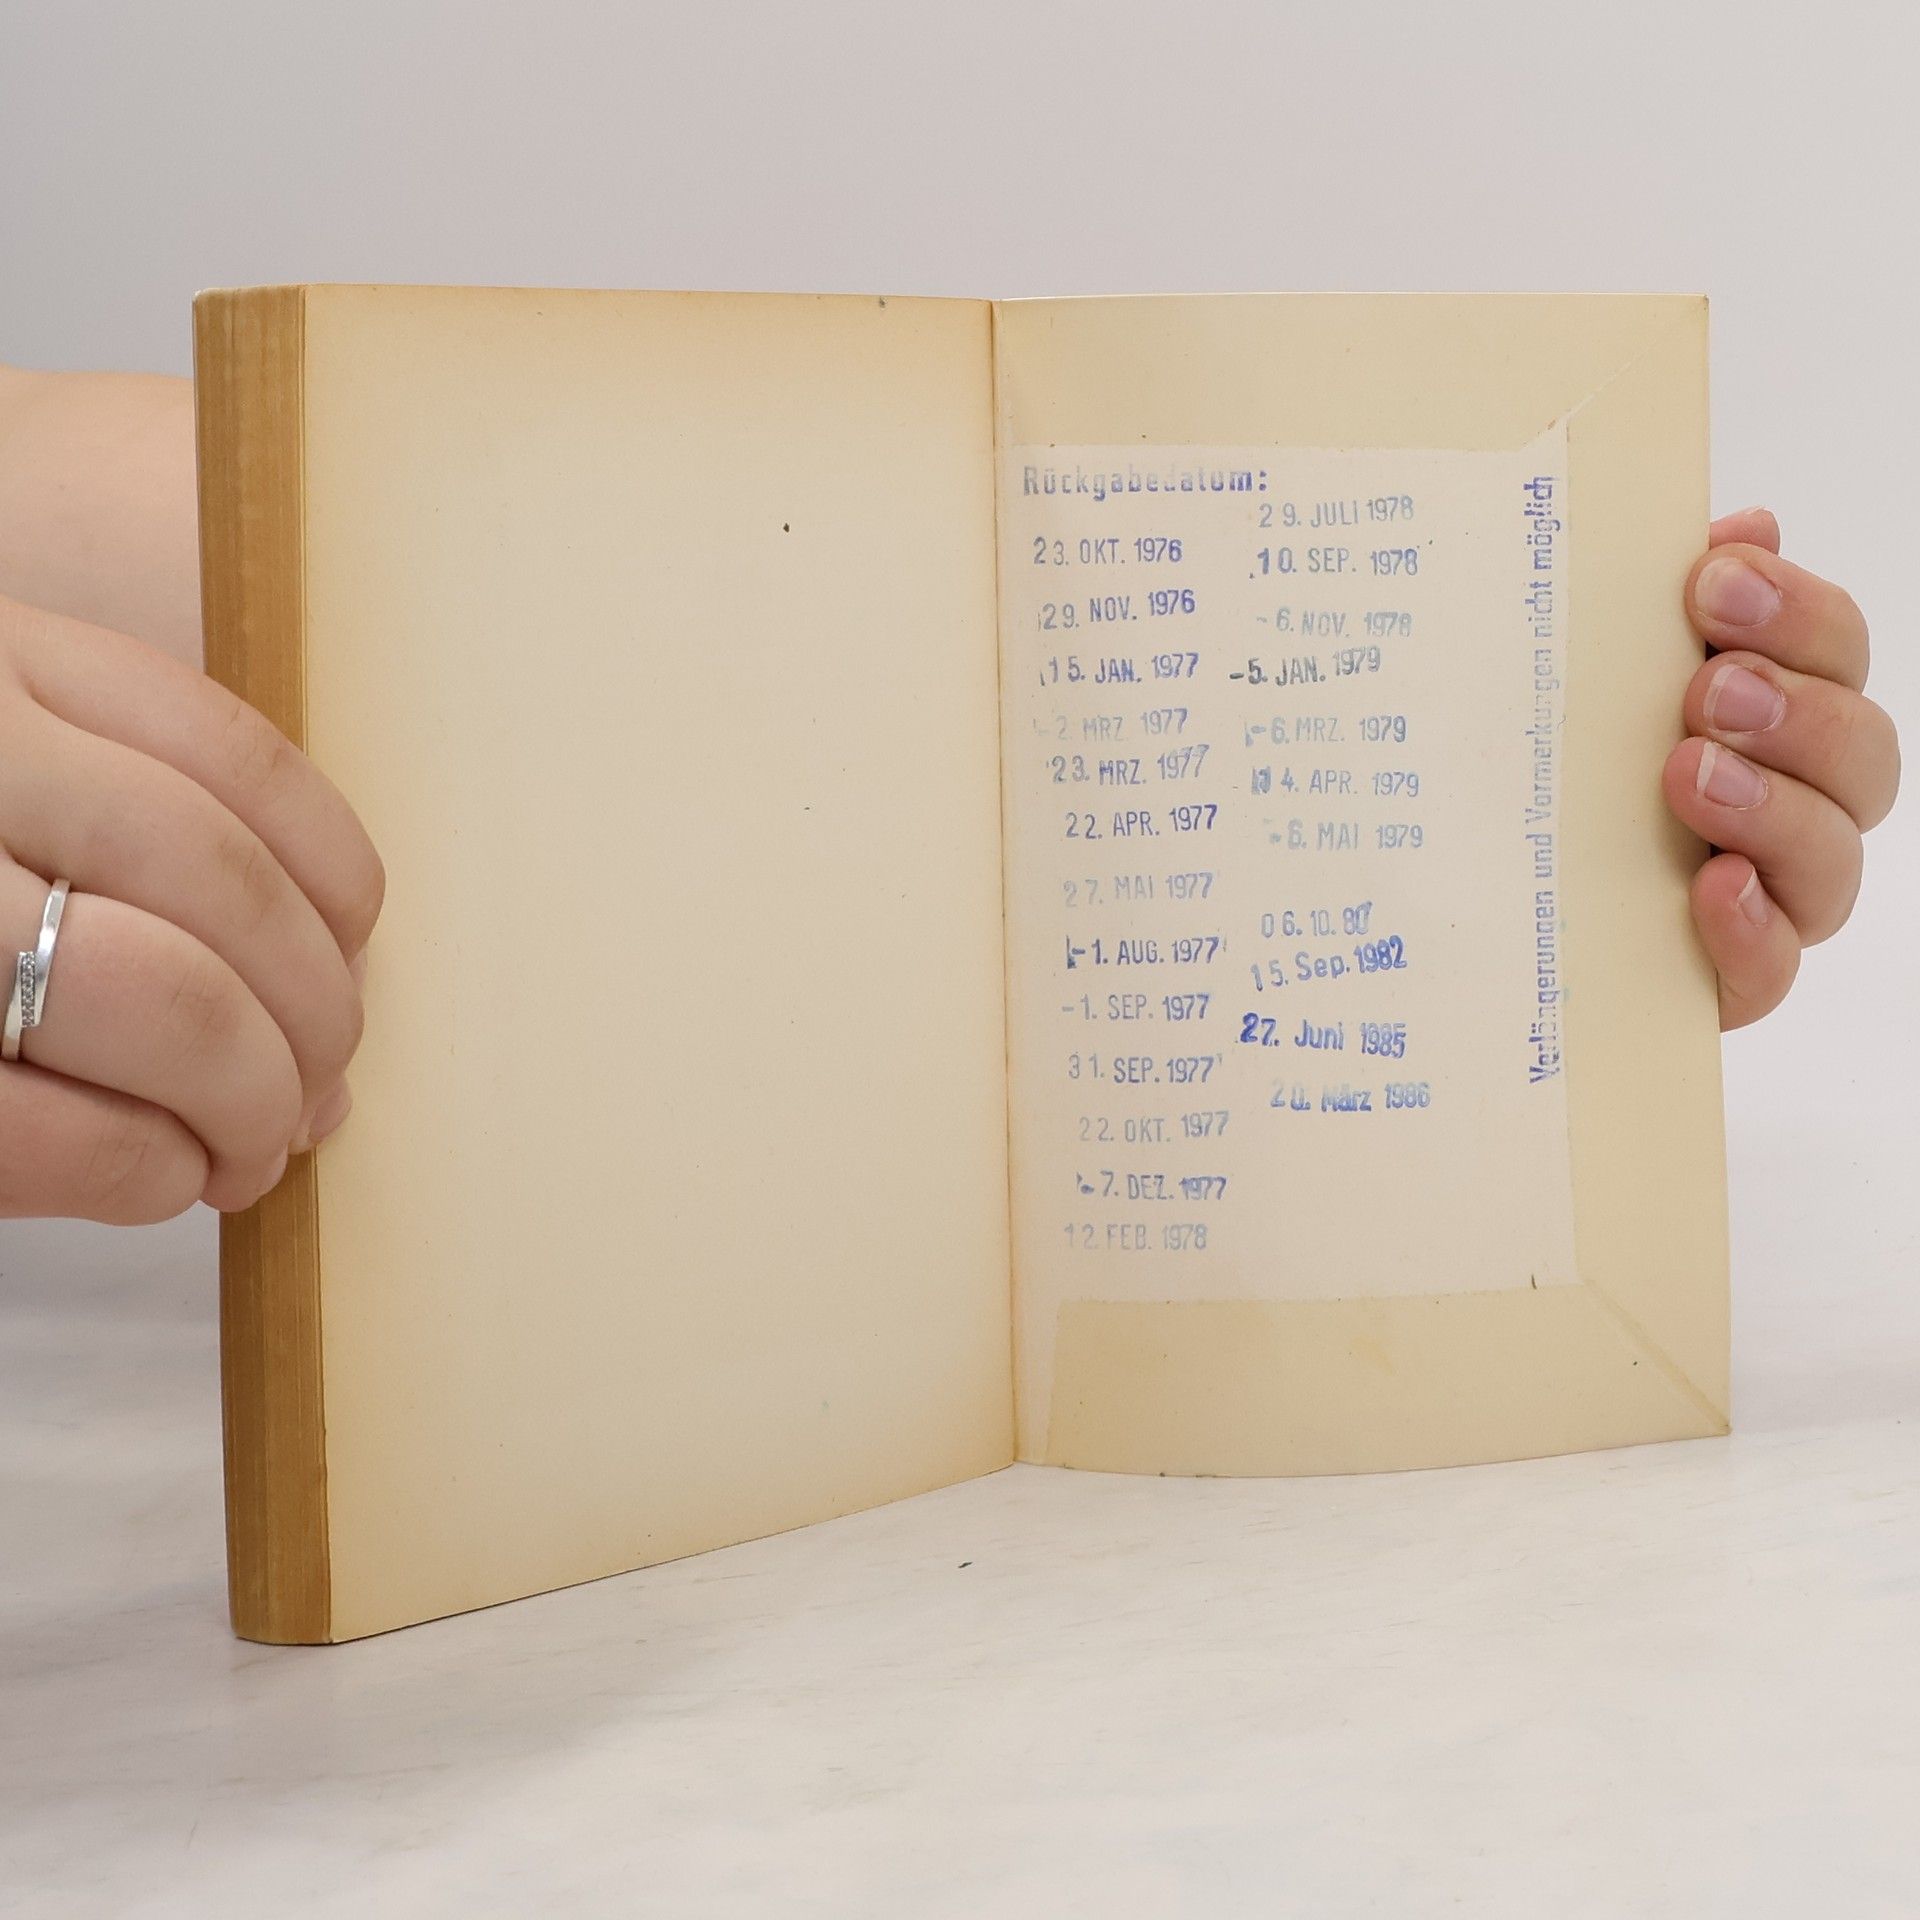 Rückgabedatum:
23. OKT. 1976
29. NOV. 1976
15. JAN. 1977
-2. MRZ. 1977
23. MRZ. 1977
22. APR. 1977
27. MAI 1977
-1. AUG. 1977
-1. SEP. 1977
31. SEP. 1977
22. OKT. 1977
-7. DEZ. 1977
12. FEB. 1978
29. JULI 1978
10. SEP. 1978
-6. NOV. 1978
-5. JAN. 1979
-6. MRZ. 1979
14. APR. 1979
-6. MAI 1979
06. 10. 80
15. Sep. 1982
27. Juni 1985
20. März 1986
Verlängerungen und Vormerkungen nicht möglich